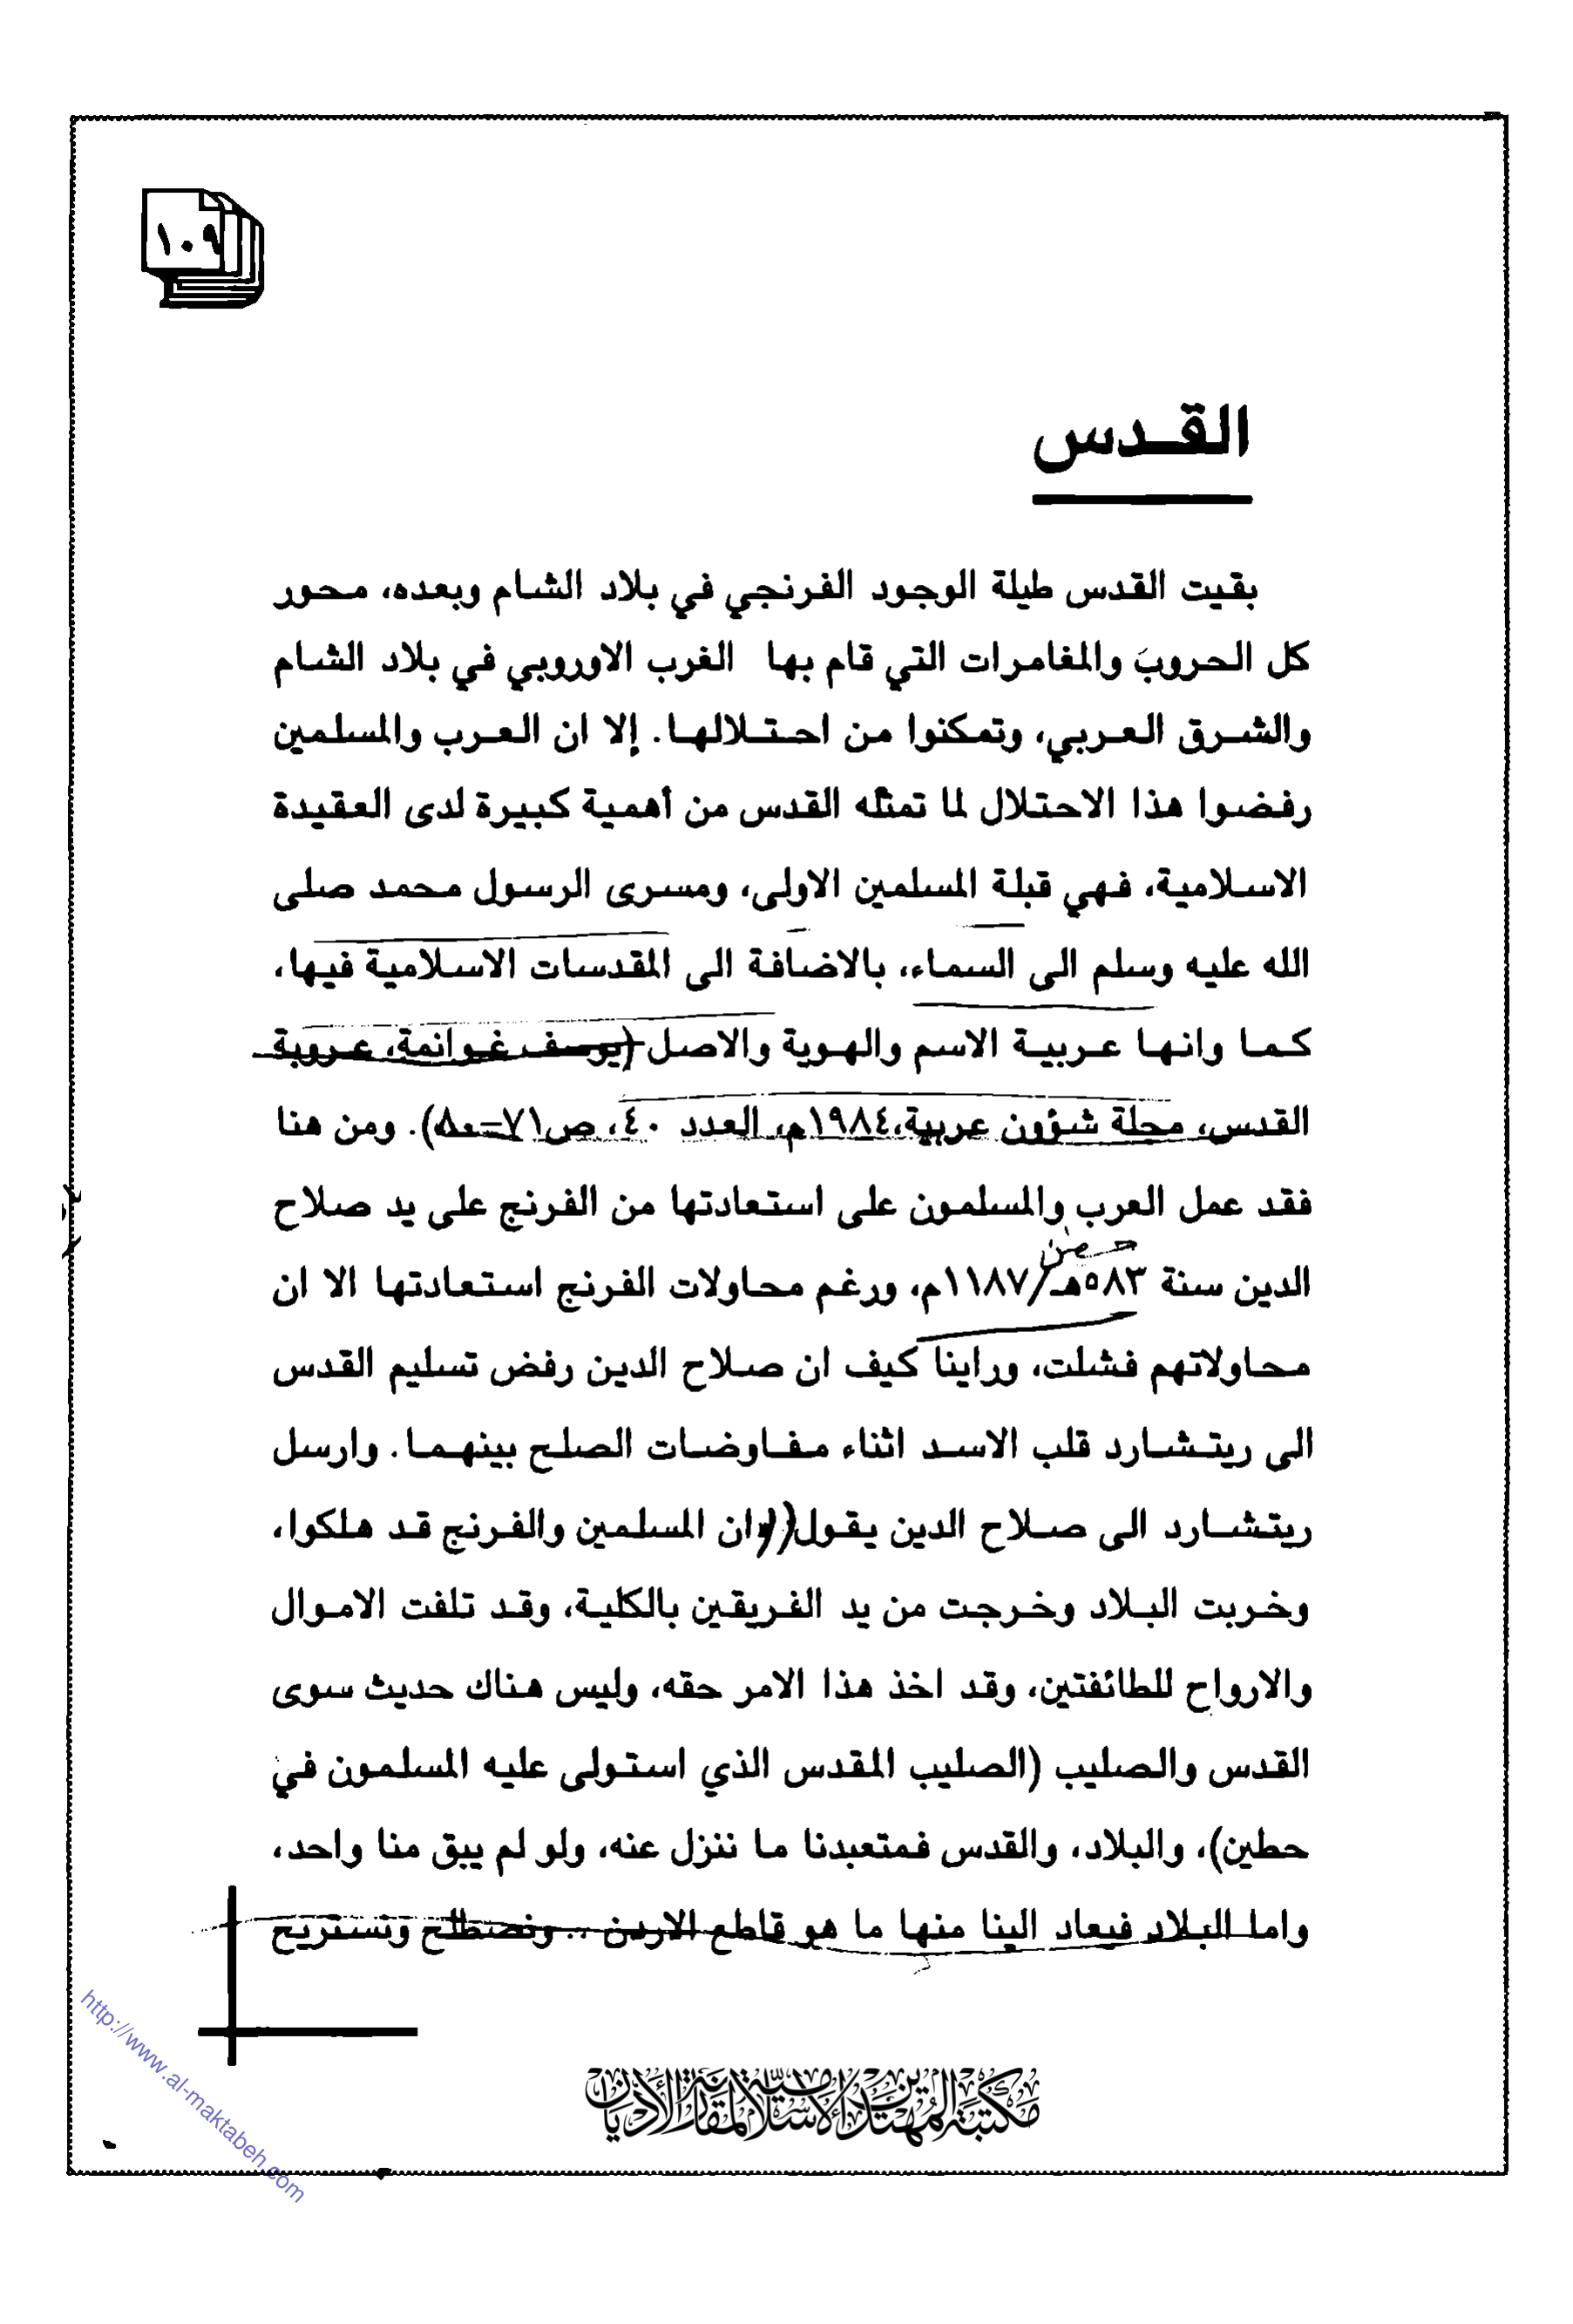 ١٠٩
القــدس
بقيت القدس طيلة الوجود الفرنجي في بلاد الشام وبعده، محور
كل الحروب والمغامرات التي قام بها الغرب الاوروبي في بلاد الشام
والشرق العربي، وتمكنوا من احتلالها. إلا ان العرب والمسلمين
رفضوا هذا الاحتلال لما تمثله القدس من أهمية كبيرة لدى العقيدة
الاسلامية، فهي قبلة المسلمين الاولى، ومسرى الرسول محمد صلى
الله عليه وسلم الى السماء، بالاضافة الى المقدسات الاسلامية فيها،
كما وانها عربية الاسم والهوية والاصل (يوسف غوانمة، عروبة
القدس، مجلة شؤون عربية،١٩٨٤م، العدد ٤٠، ص٧١-٨٠). ومن هنا
فقد عمل العرب والمسلمون على استعادتها من الفرنج على يد صلاح
الدين سنة ٥٨٣هـ/١١٨٧م، ورغم محاولات الفرنج استعادتها الا ان
محاولاتهم فشلت، وراينا كيف ان صلاح الدين رفض تسليم القدس
الى ريتشارد قلب الاسد اثناء مفاوضات الصلح بينهما. وارسل
ريتشارد الى صلاح الدين يقول((ان المسلمين والفرنج قد هلكوا،
وخربت البلاد وخرجت من يد الفريقين بالكلية، وقد تلفت الاموال
والارواح للطائفتين، وقد اخذ هذا الامر حقه، وليس هناك حديث سوى
القدس والصليب (الصليب المقدس الذي استولى عليه المسلمون في
حطين)، والبلاد، والقدس فمتعبدنا ما ننزل عنه، ولو لم يبق منا واحد،
واما البلاد فيعاد الينا منها ما هو قاطع الاردن .. ونصطلح ونستريح
مكتبة المهتدين الإسلامية لمقارنة الأديان
http://www.al-maktabeh.com